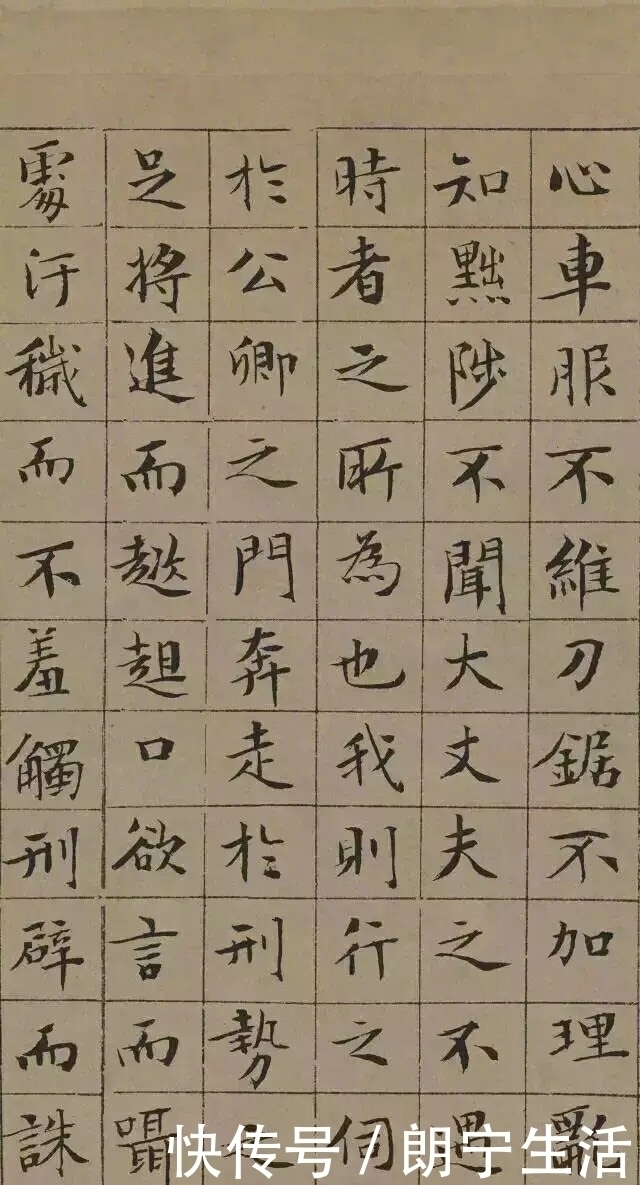 心車服不維刀鋸不加理亂
知黜陟不聞大丈夫之不遇
時者之所為也我則行之伺
於公卿之門奔走於刑勢
足將進而趑趄口欲言而囁
處汙穢而不羞觸刑辟而誅
快传号 / 朗宁生活